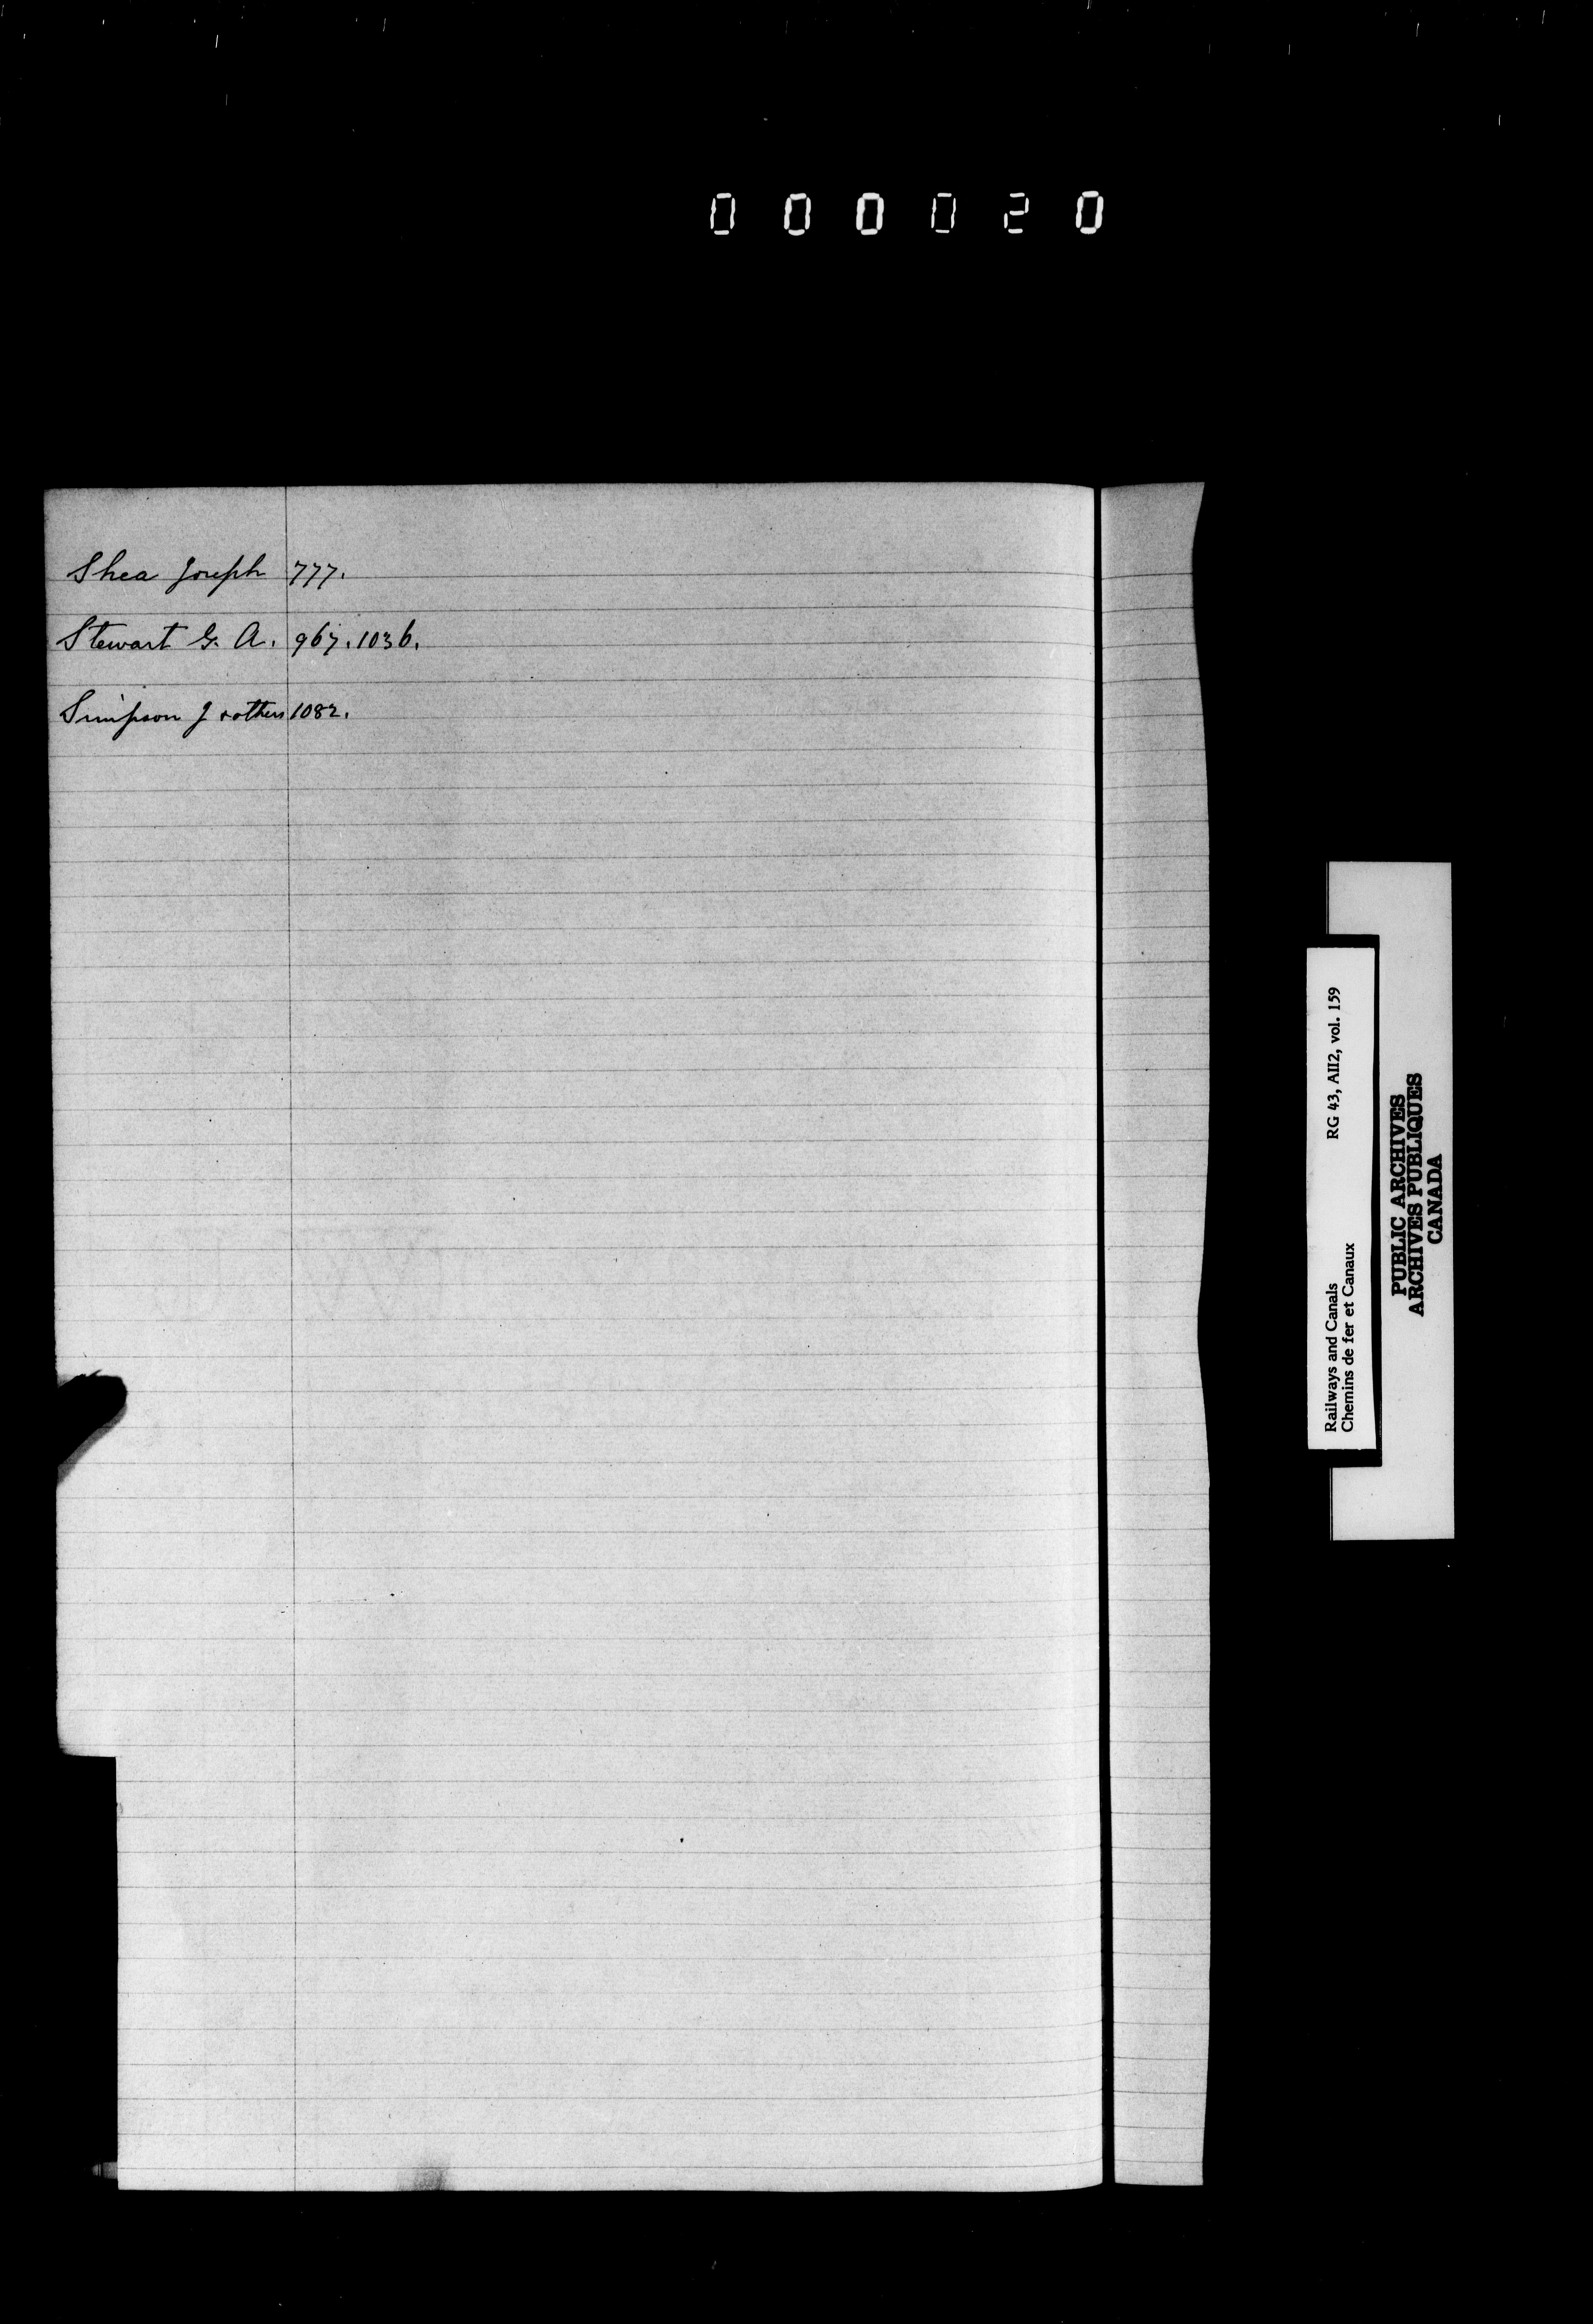 000020
Shea Joseph 777.
Stewart G. A. 967. 1036.
Simpson J & others 1082.
Railways and Canals RG 43, AII2, vol. 159
Chemins de fer et Canaux
PUBLIC ARCHIVES
ARCHIVES PUBLIQUES
CANADA